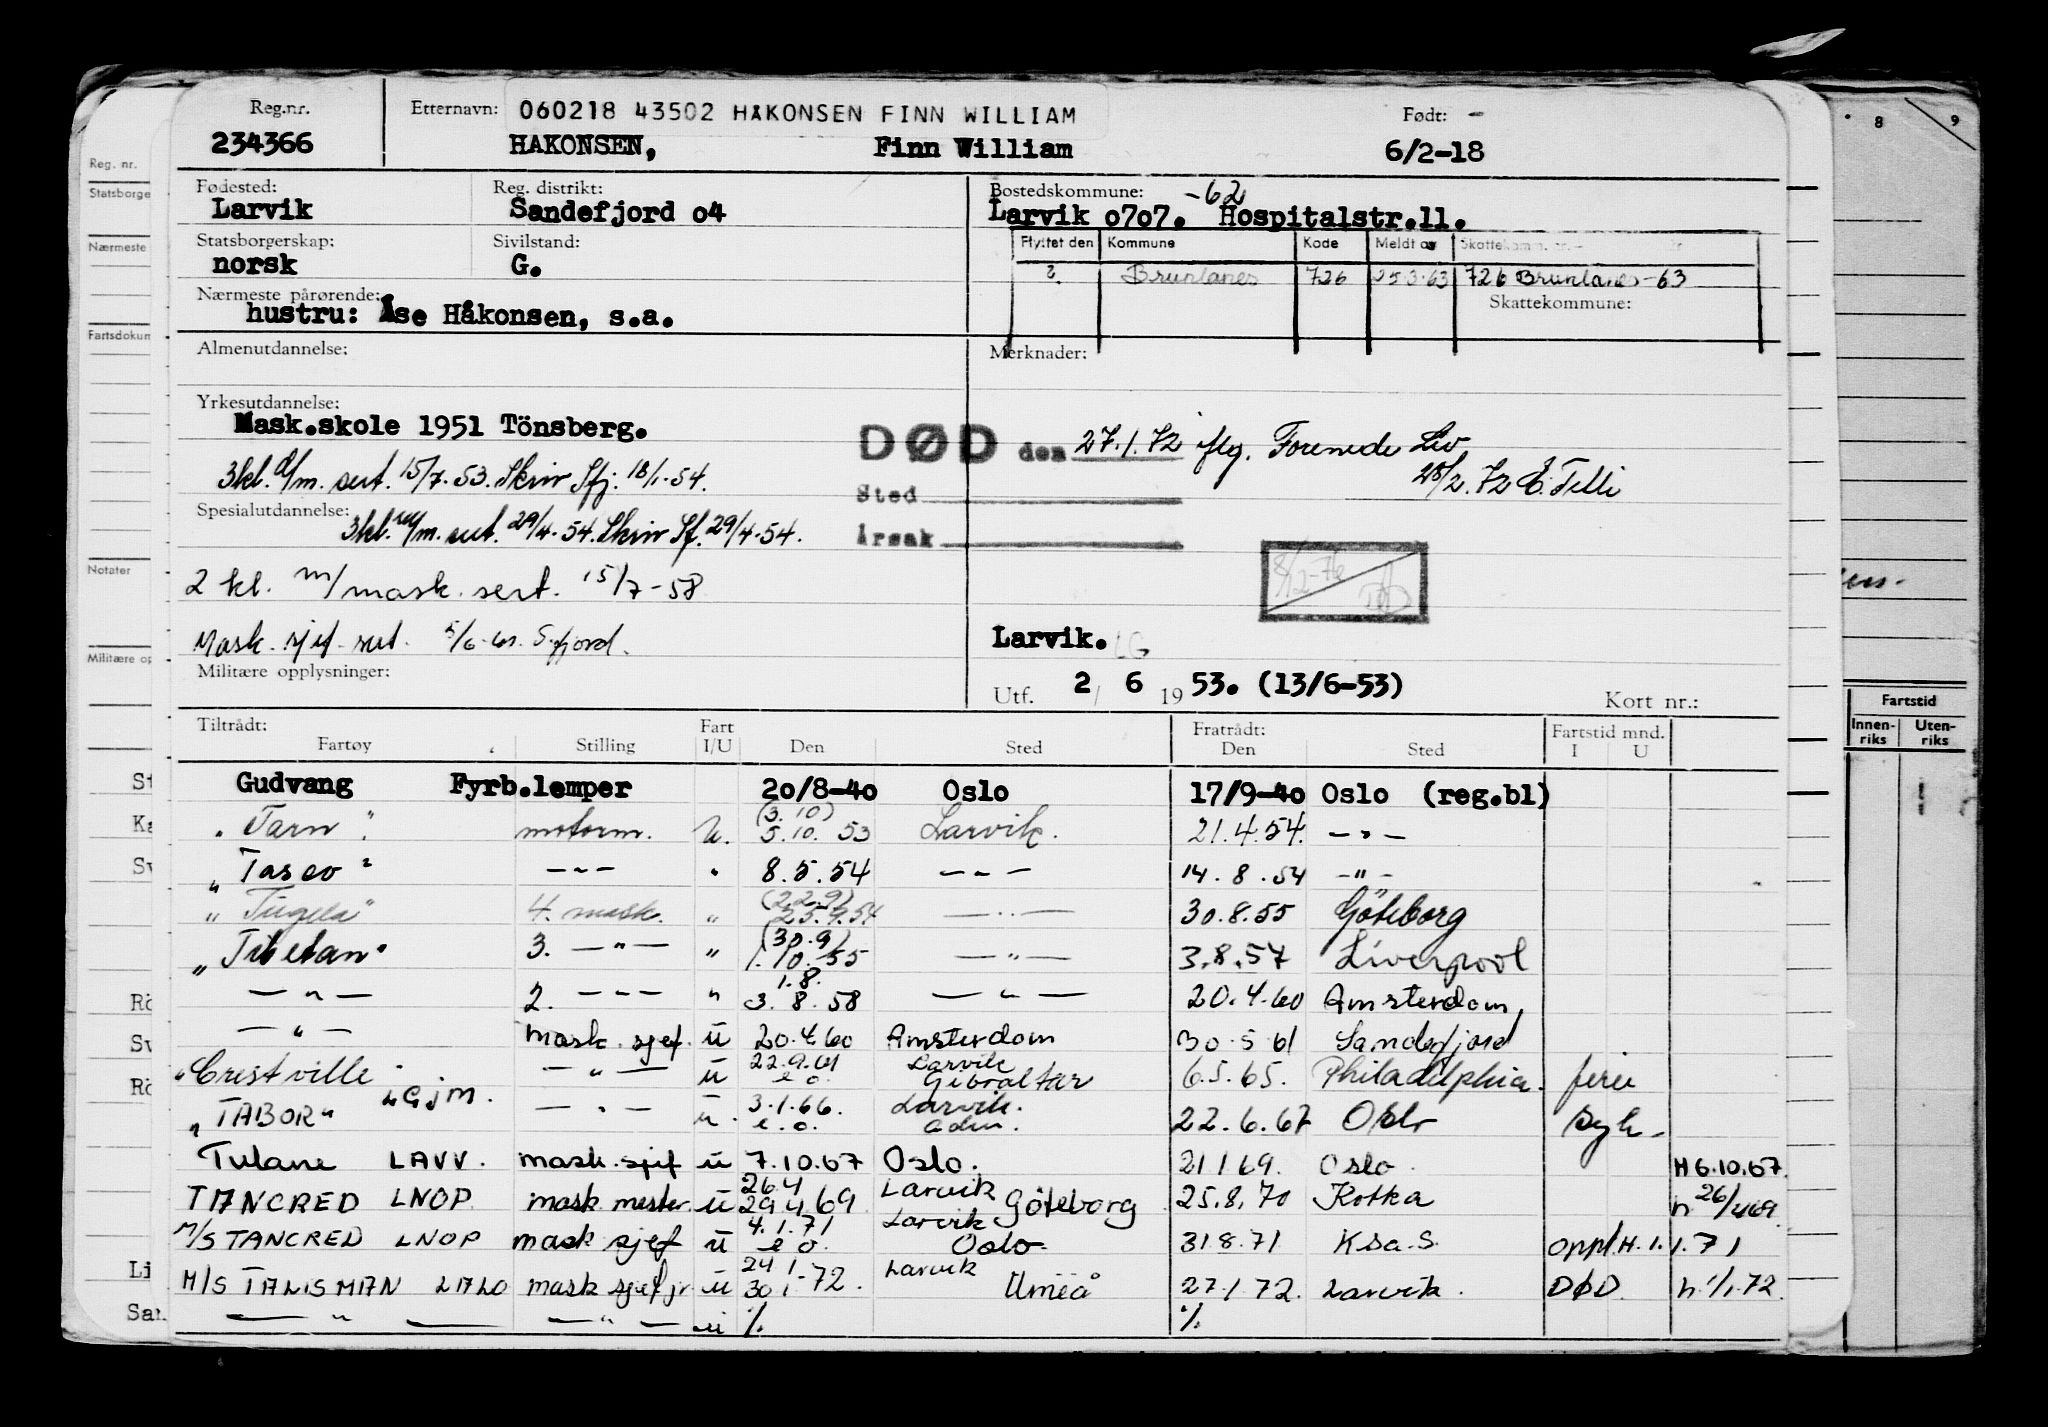 Reg.nr. Etternavn: 060218 43502 HÅKONSEN FINN WILLIAM Født: -
234366 HAKONSEN, Finn William 6/2-18
Fødested: Reg. distrikt: Bostedskommune: -62
Larvik Sandefjord o4 Larvik o7o7. Hospitalstr.11.
Statsborgerskap: Sivilstand: Flyttet den Kommune Kode Meldt av
norsk G. ? Brunlanes 726 25.3.63 726 Brunlanes-63
Nærmeste pårørende: Skattekommune:
hustru: Åse Håkonsen, s.a.
Almenutdannelse: Merknader:
Yrkesutdannelse:
Mask.skole 1951 Tönsberg.
DØD den 27.1.72 iflg. Forenede Liv
3kl. d/m. sert. 15/7-53. Skriv Sfj. 18/1-54. 28/2.72 E. Telli
Sted
Spesialutdannelse:
3kl. m/m. sert. 29/4-54. Skriv Sf. 29/4-54. Årsak
2 kl. m/mask. sert. 15/7-58 8/12-76
Mask. sjef. sert. S.fjord. Larvik. LG
Militære opplysninger:
Utf. 2/ 6 19 53. (13/6-53) Kort nr.:
Tiltrådt: Fart Fratrådt: Fartstid mnd.
Fartøy Stilling I/U Den Sted Den Sted I U
Gudvang Fyrb.lemper 2o/8-4o Oslo 17/9-4o Oslo (reg.bl)
(3.10)
"Tarn" motorm. u. 5.10.53 Larvik. 21.4.54. — " —
"Tasco" — " — " 8.5.54 — " — 14.8.54 — " —
(22.9)
"Tugela" 4. mask. " 23.9.54 — " — 30.8.55 Göteborg
(30.9)
"Tibetan" 3. — " — " 1.10.55 — " — 3.8.57 Liverpool
1.8.
— " — 2. — " — " 3.8.58 — " — 20.4.60 Amsterdam,
— " — mask. sjef. u 20.4.60 Amsterdam 30.5.61 Sandefjord
22.9.61 Larvik
"Crestville" — " — u e.o. Gibraltar 6.5.65. Philadelphia. ferie
LGJM. 3.1.66. Larvik.
"TABOR" — " — u. e.o. Aden. 22.6.67 Oslo syk.
Tulane LAVV. mask.sjef u 7.10.67 Oslo. 21.1.69. Oslo. H 6.10.67.
26.4 Larvik
TANCRED LNOP mask mester u 29.4.69 Göteborg 25.8.70 Kotka h 26/4 69.
4.1.71 Larvik
M/S TANCRED LNOP mask sjef u e o. Oslo. 31.8.71 K.sa.S. oppl.H. 1.1.71
24.1 Larvik
M/S TALISMAN LALO mask sjef jr. u 30.1-72. Umeå 27.1.72. Larvik. DØD. h. 1/1.72.
— " — — " — u %. %.
Reg. nr.
Statsborge
Nærmeste
Fartsdokum
Notater
Militære op
St
Ka
Sv
Rö
Sv
Rö
Li
San
8 9
Fartstid
Innen-riks Uten-riks